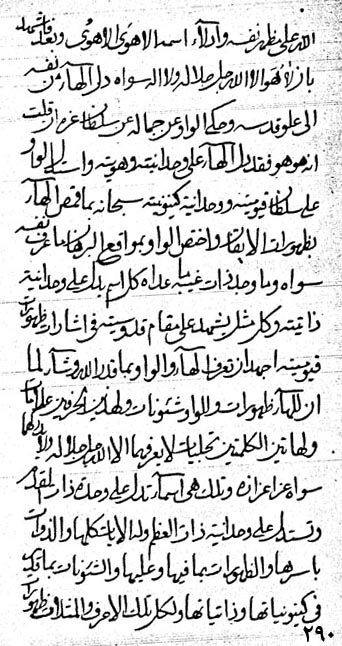 الله على مظهر نفسه واداء اسمه الاهوى الاهوى وبعد فاشهد
بان لا هو الا الله جل جلاله ولا اله سواه دل الهاء من نفسه
الى علو قدسه وحكى الواو عن جماله عن سلطان عز ان قلت
انه هو هو فقد دل الهاء على وحدانيته وهويته واستدل الواو
على سلطان قيوميته ووحدانية كينونيته سبحانه بما قمص الهاء
بظهورات الايقان واختص الواو بمواقع البرهان ما عرف نفسه
سواه وما وحد ذات غيب ما عداه كل اسم يدل على وحدانية
ذاتيته وكل مثل يشهد على مقام قدوسيته في اشارات ظهورات
قيوميته اجهد ان تعرف الهاء والواو بما قدر الله وشاء لما
ان للهاء ظهورات وللواو شئونات ولهذين الحرفين علامات
ولهاتين الكلمتين تجليات لا يعرفها الا الله جل جلاله ولا
سواه عز اعزازه وتلك هي اسماء تدل على وحدة ذات المقدر
وتستدل على وحدانية ذات العظم وله الايات كلها والذوات
باسرها والظهورات بما فيها وعليها والشئونات بما قدر
في كينونياتها وذاتياتها ولكل تلك الاحرف والمتدلات ظهورات
٢٩٠